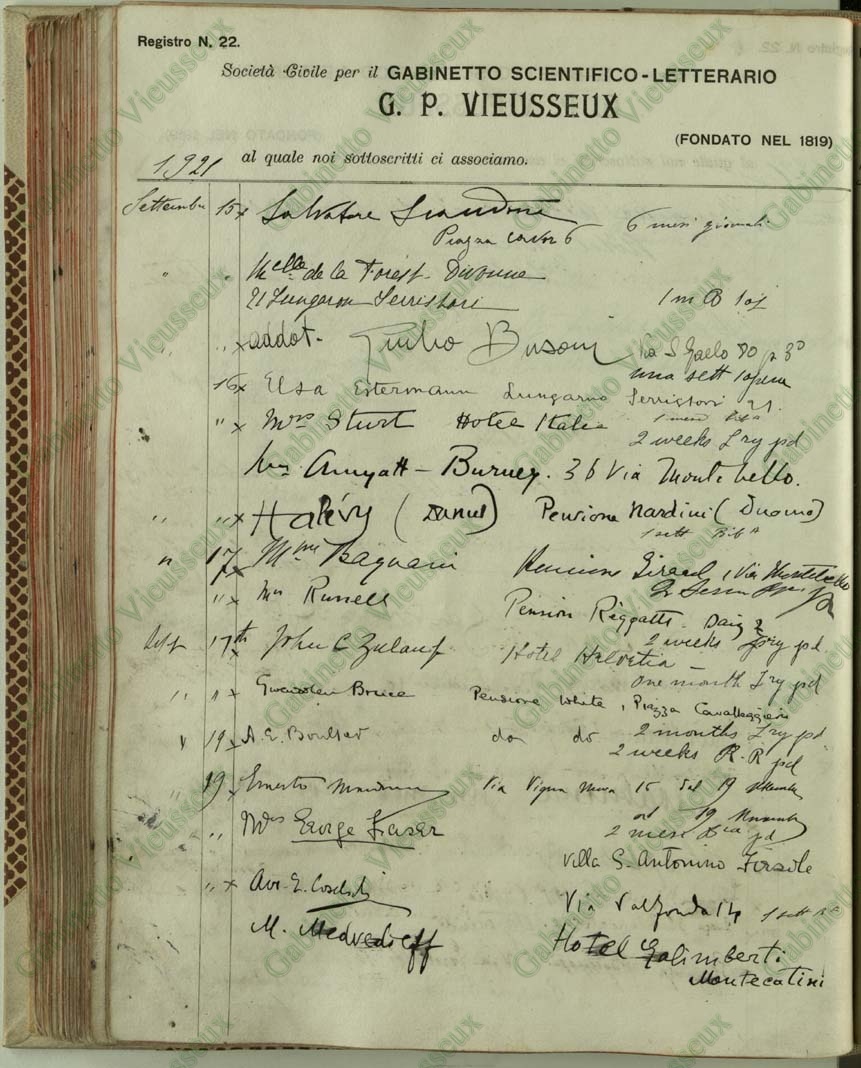 Registro N. 22.
Società Civile per il GABINETTO SCIENTIFICO-LETTERARIO
G. P. VIEUSSEUX
(FONDATO NEL 1819)
1921 al quale noi sottoscritti ci associamo.
Settembre 15 x Salvatore 6 mesi giornali
Piazza Cavour 6
" " Melle de la Forest-Divonne
21 Lungarno Serristori 1 m
" " x addot. Giulio Busoni Via S Gallo 80 p 3º
una sett 1 opera
16 x Elsa Estermann Lungarno Serristori 21.
" x Mrs Sturt Hotel Italie
2 weeks Lry pd
Mrs Amyatt-Burney. 36 Via Montebello.
" " x Halévy (Daniel) Pensione Nardini (Duomo)
1 sett Bib A
" 17 x Mme Bagnani Pension Girard, Via Montebello
" x Mrs Russell Pension Riggatti
2 weeks Lry pd.
Sept 17th x John C Zulauf Hotel Helvetia
one month Lry pd
" " x Gwendolen Bruce Pensione White, Piazza Cavalleggieri
2 months Lry pd
" 19 x A. E. Boulter do do
2 weeks R.R pd
" 19 x Ernesto Via Vigna Nuova 15 dal 19 settembre
al 19 Novembre
" Mrs George Fraser 2 mesi pd
Villa S. Antonino Fiesole
" x Avv. E. Coselschi Via Valfonda 14 1 sett
M. Medvedieff Hotel Galimberti
Montecatini
Gabinetto Vieusseux